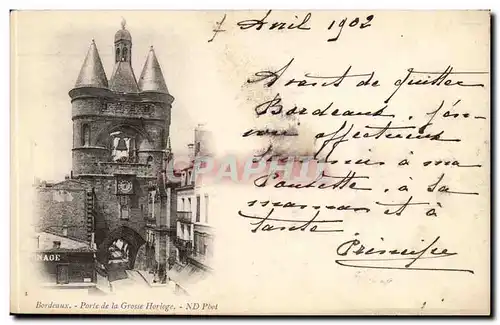 7 Avril 1902
Avant de quitter
Bordeaux, j'en
voie affectueux
souvenirs à ma
Paulette, à sa
maman et à
tante
Principe
CPArama
NAGE
1
Bordeaux. - Porte de la Grosse Horloge. - ND Phot